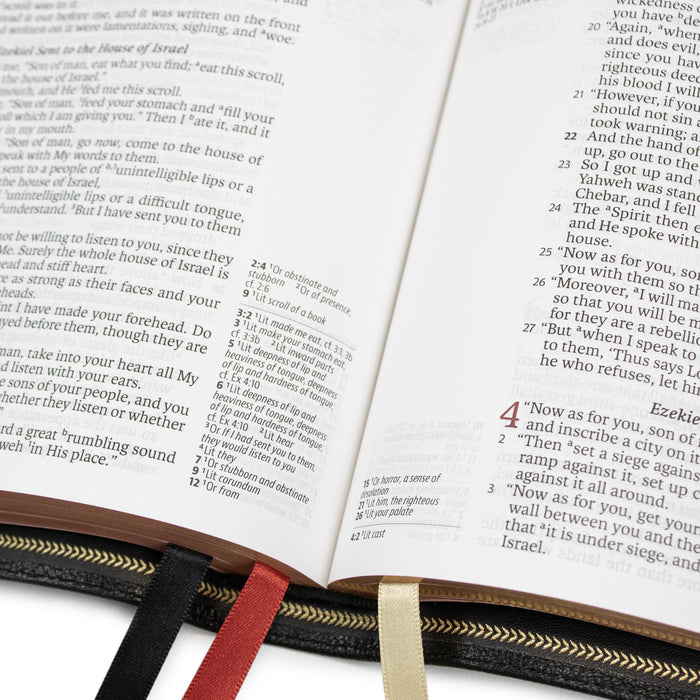 scroll was in it.
it out before me, and it was written on the front
on it were lamentations, sighing, and ᵃwoe.
Ezekiel Sent to the House of Israel
me, "Son of man, eat what you find; ᵃeat this scroll,
the house of Israel."
mouth, and He ¹fed me this scroll.
"Son of man, ¹feed your stomach and ᵃfill your
scroll which I am giving you." Then I ᵇate it, and it
y in my mouth.
"Son of man, go now, come to the house of
speak with My words to them.
sent to a people of ᵇ,¹unintelligible lips or a
the house of Israel,
¹unintelligible lips or a difficult tongue,
²understand. ³But I have sent you to them
not be willing to listen to you, since they
Me. Surely the whole house of Israel is
head and stiff heart.
as strong as their faces and your
heads.
int I have made your forehead. Do
yed before them, though they are
man, take into your heart all My
nd listen with your ears.
e sons of your people, and you
whether they listen or whether
"
ard a great ᵇrumbling sound
weh ¹in His place."
2:4 ¹Or obstinate and
stubborn ²Or of presence,
cf. 2:6
9 ¹Lit scroll of a book
3:2 ¹Lit made me eat, cf. 3:1, 3b
3 ¹Lit make your stomach eat,
cf. 3:3b ²Lit inward parts
5 ¹Lit deepness of lip and
heaviness of tongue, deepness
of lip and hardness of tongue,
cf. Ex 4:10
6 ¹Lit deepness of lip and
heaviness of tongue, deepness
of lip and hardness of tongue,
cf. Ex 4:10 ²Lit hear
³Or If I had sent you to them
they would listen to you
4 ¹Lit they
7 ¹Or stubborn and obstinate
9 ¹Lit corundum
12 ¹Or from
15 ¹Or horror, a sense of
desolation
21 ¹Lit him, the righteous
26 ¹Lit your palate
4:2 ¹Lit cast
wickedness
you have ᵇde
20 "Again, ᵃwhen
and does evil,
since you have
righteous deed
his blood I will
21 "However, if you
should not sin a
took warning; a
22 And the hand of
up, go out to the
23 So I got up and
Yahweh was stand
Chebar, and I fell
24 The ᵃSpirit then e
and He spoke with
house.
25 "Now as for you, son
you with them so th
26 "Moreover, ᵃI will ma
so that you will be m
for they are a rebelli
27 "But ᵃwhen I speak to
to them, 'Thus says Lo
he who refuses, let hi
Ezekie
4 "Now as for you, son of
and inscribe a city on it
2 "Then ᵃset a siege against
ramp against it, set up
against it all around.
3 "Now as for you, get your
wall between you and the
that ᵃit is under siege, and
Israel.